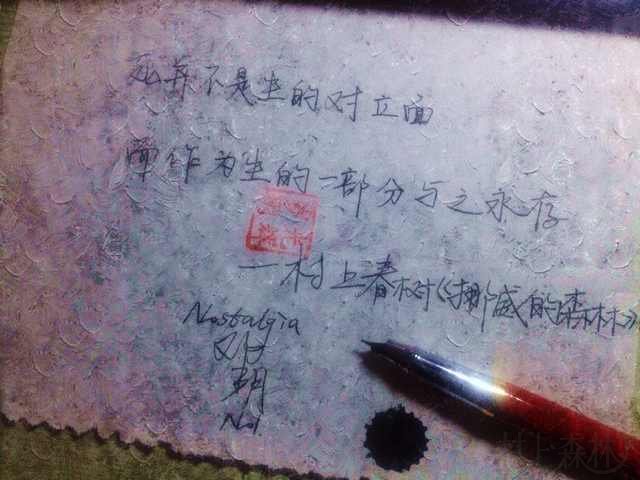 死并不是生的对立面
而作为生的一部分与之永存
—村上春树《挪威的森林》
Nostalgia
No1
村上森林